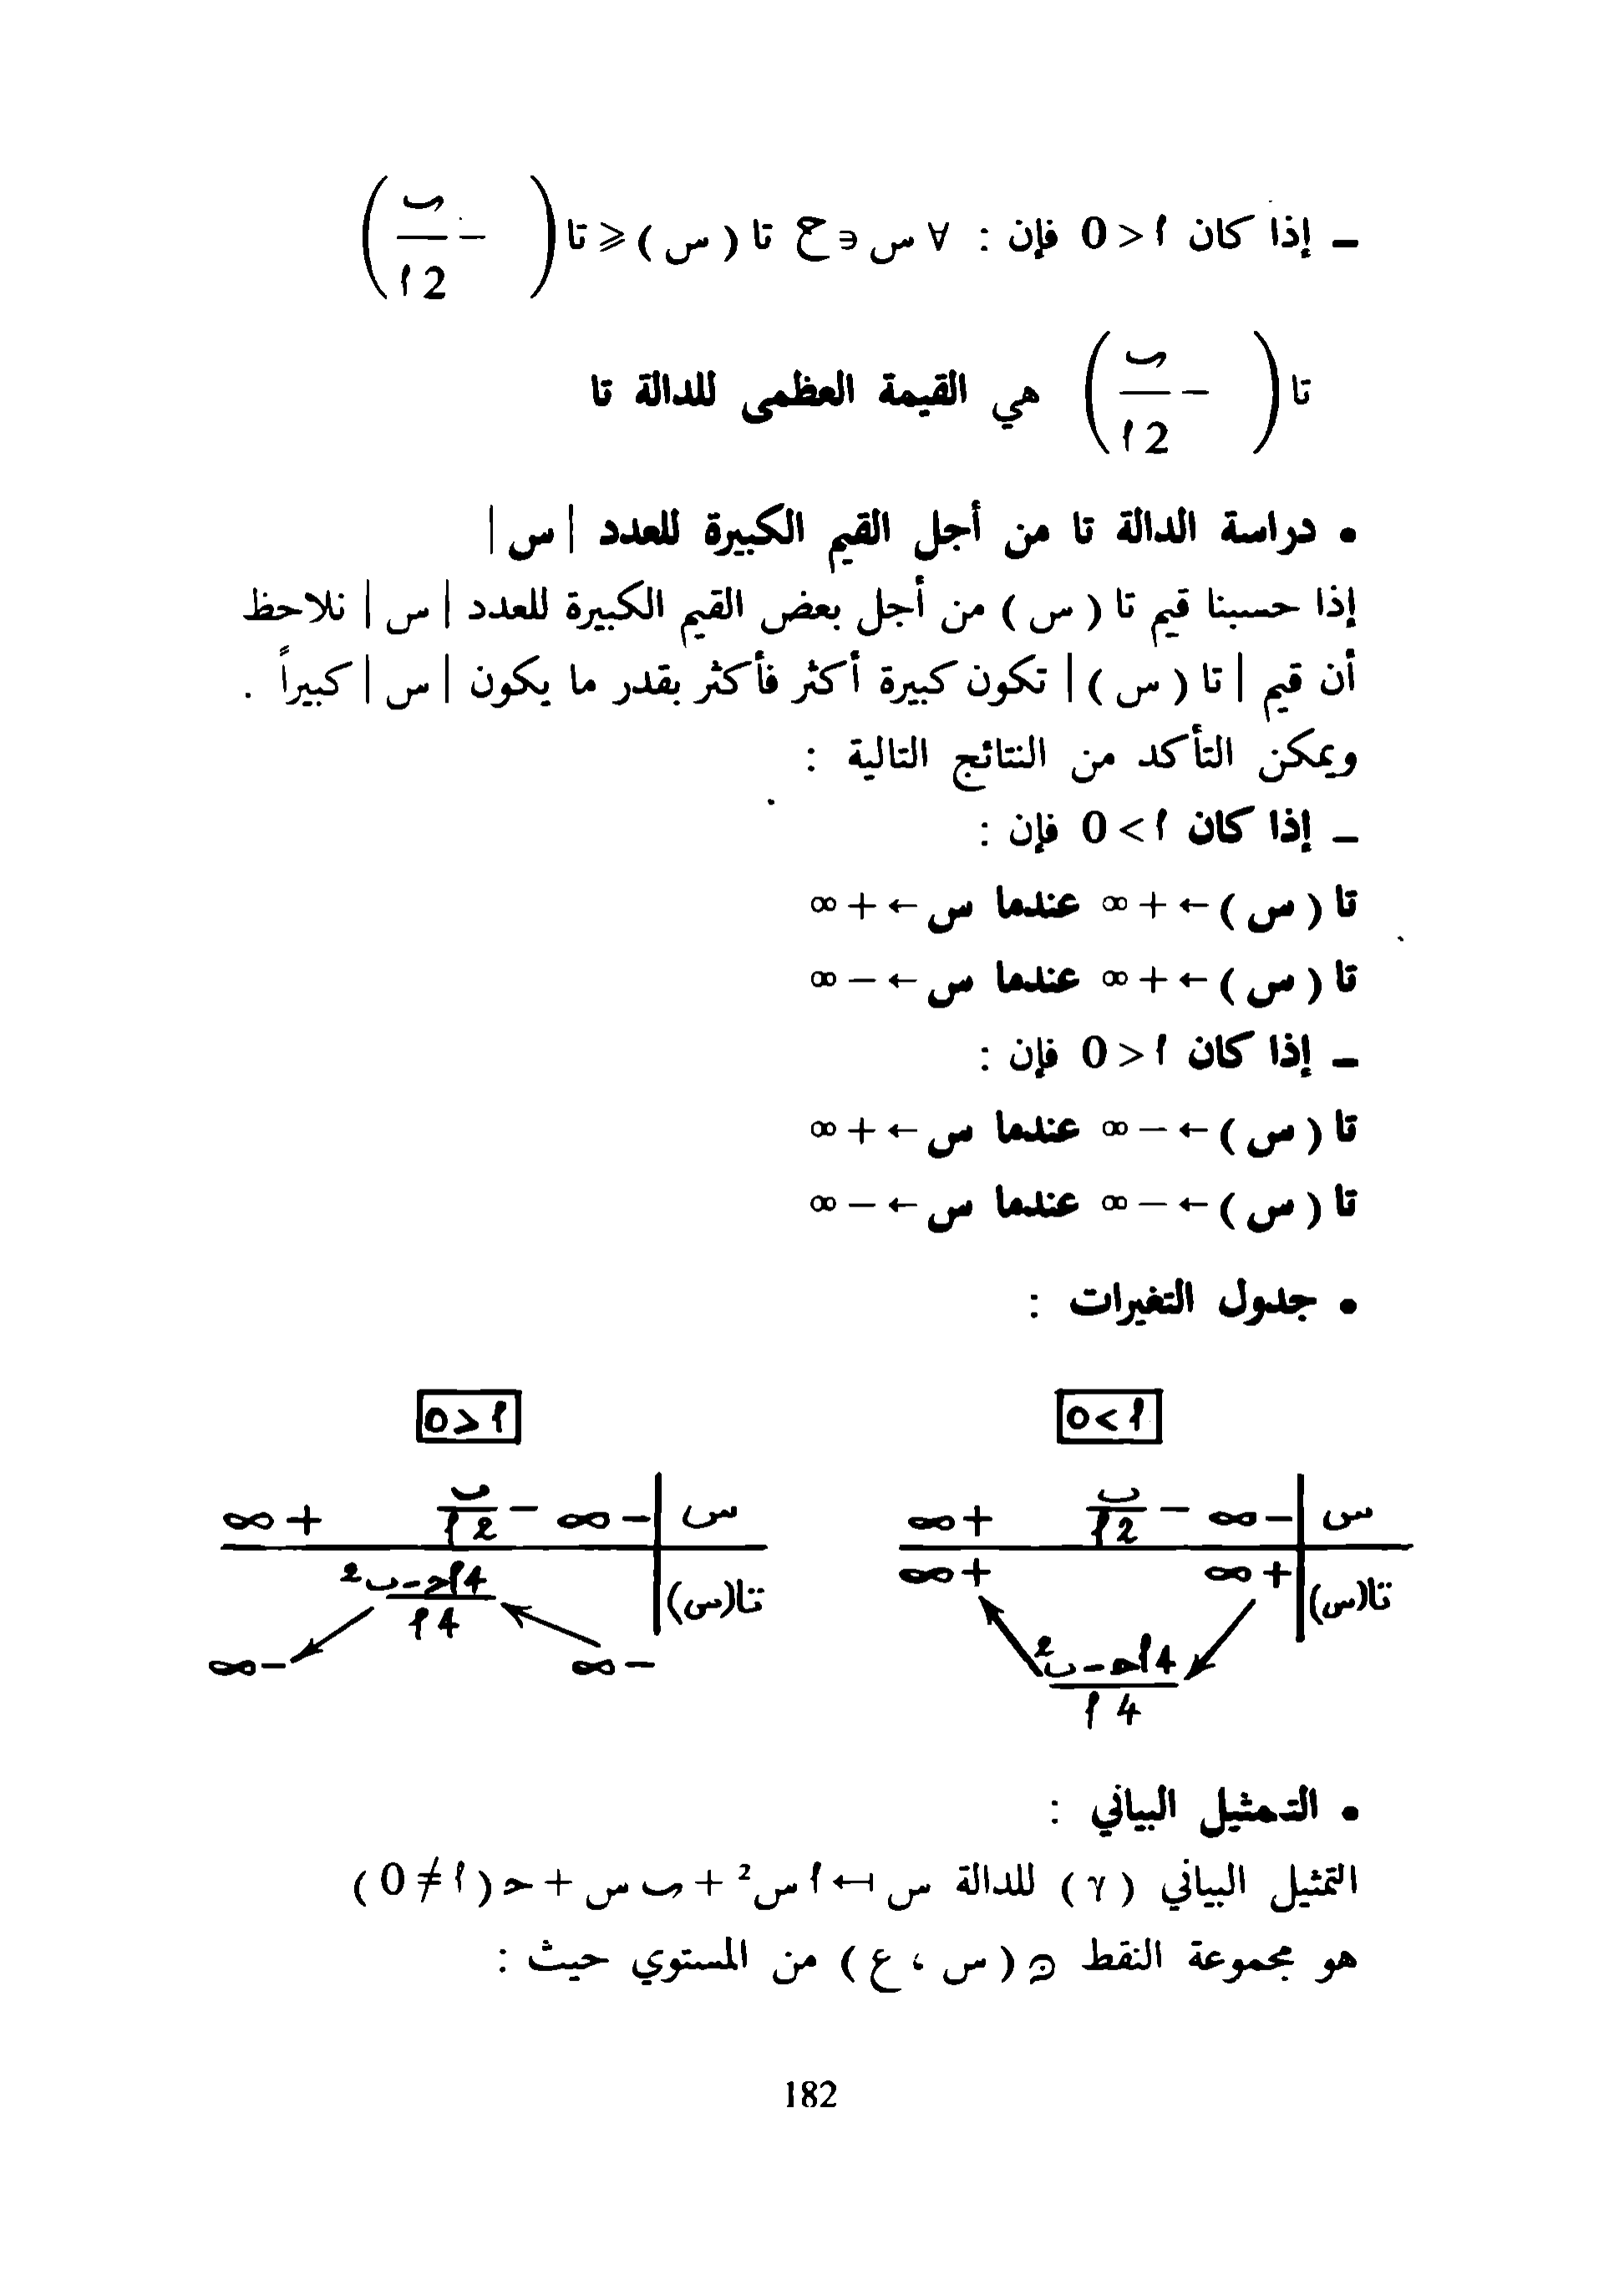 – إذا كان ا < 0 فإن : ∀ س ∈ ح تا ( س ) ⩽ تا ( – ب / 2 ا )
تا ( – ب / 2 ا ) هي القيمة العظمى للدالة تا
• دراسة الدالة تا من أجل القيم الكبيرة للعدد | س |
إذا حسبنا قيم تا ( س ) من أجل بعض القيم الكبيرة للعدد | س | نلاحظ
أن قيم | تا ( س ) | تكون كبيرة أكثر فأكثر بقدر ما يكون | س | كبيراً .
ويمكن التأكد من النتائج التالية :
– إذا كان ا > 0 فإن :
تا ( س ) ← + ∞ عندما س ← + ∞
تا ( س ) ← + ∞ عندما س ← – ∞
– إذا كان ا < 0 فإن :
تا ( س ) ← – ∞ عندما س ← + ∞
تا ( س ) ← – ∞ عندما س ← – ∞
• جدول التغيرات :
ا > 0
س – ∞ – ب / 2 ا + ∞
تا(س) + ∞ + ∞
4 ا حـ – ب² / 4 ا
ا < 0
س – ∞ – ب / 2 ا + ∞
تا(س) 4 ا حـ – ب² / 4 ا
– ∞ – ∞
• التمثيل البياني :
التمثيل البياني ( γ ) للدالة س ↤ ا س² + ب س + حـ ( ا ≠ 0 )
هو مجموعة النقط ن ( س ، ع ) من المستوي حيث :
182